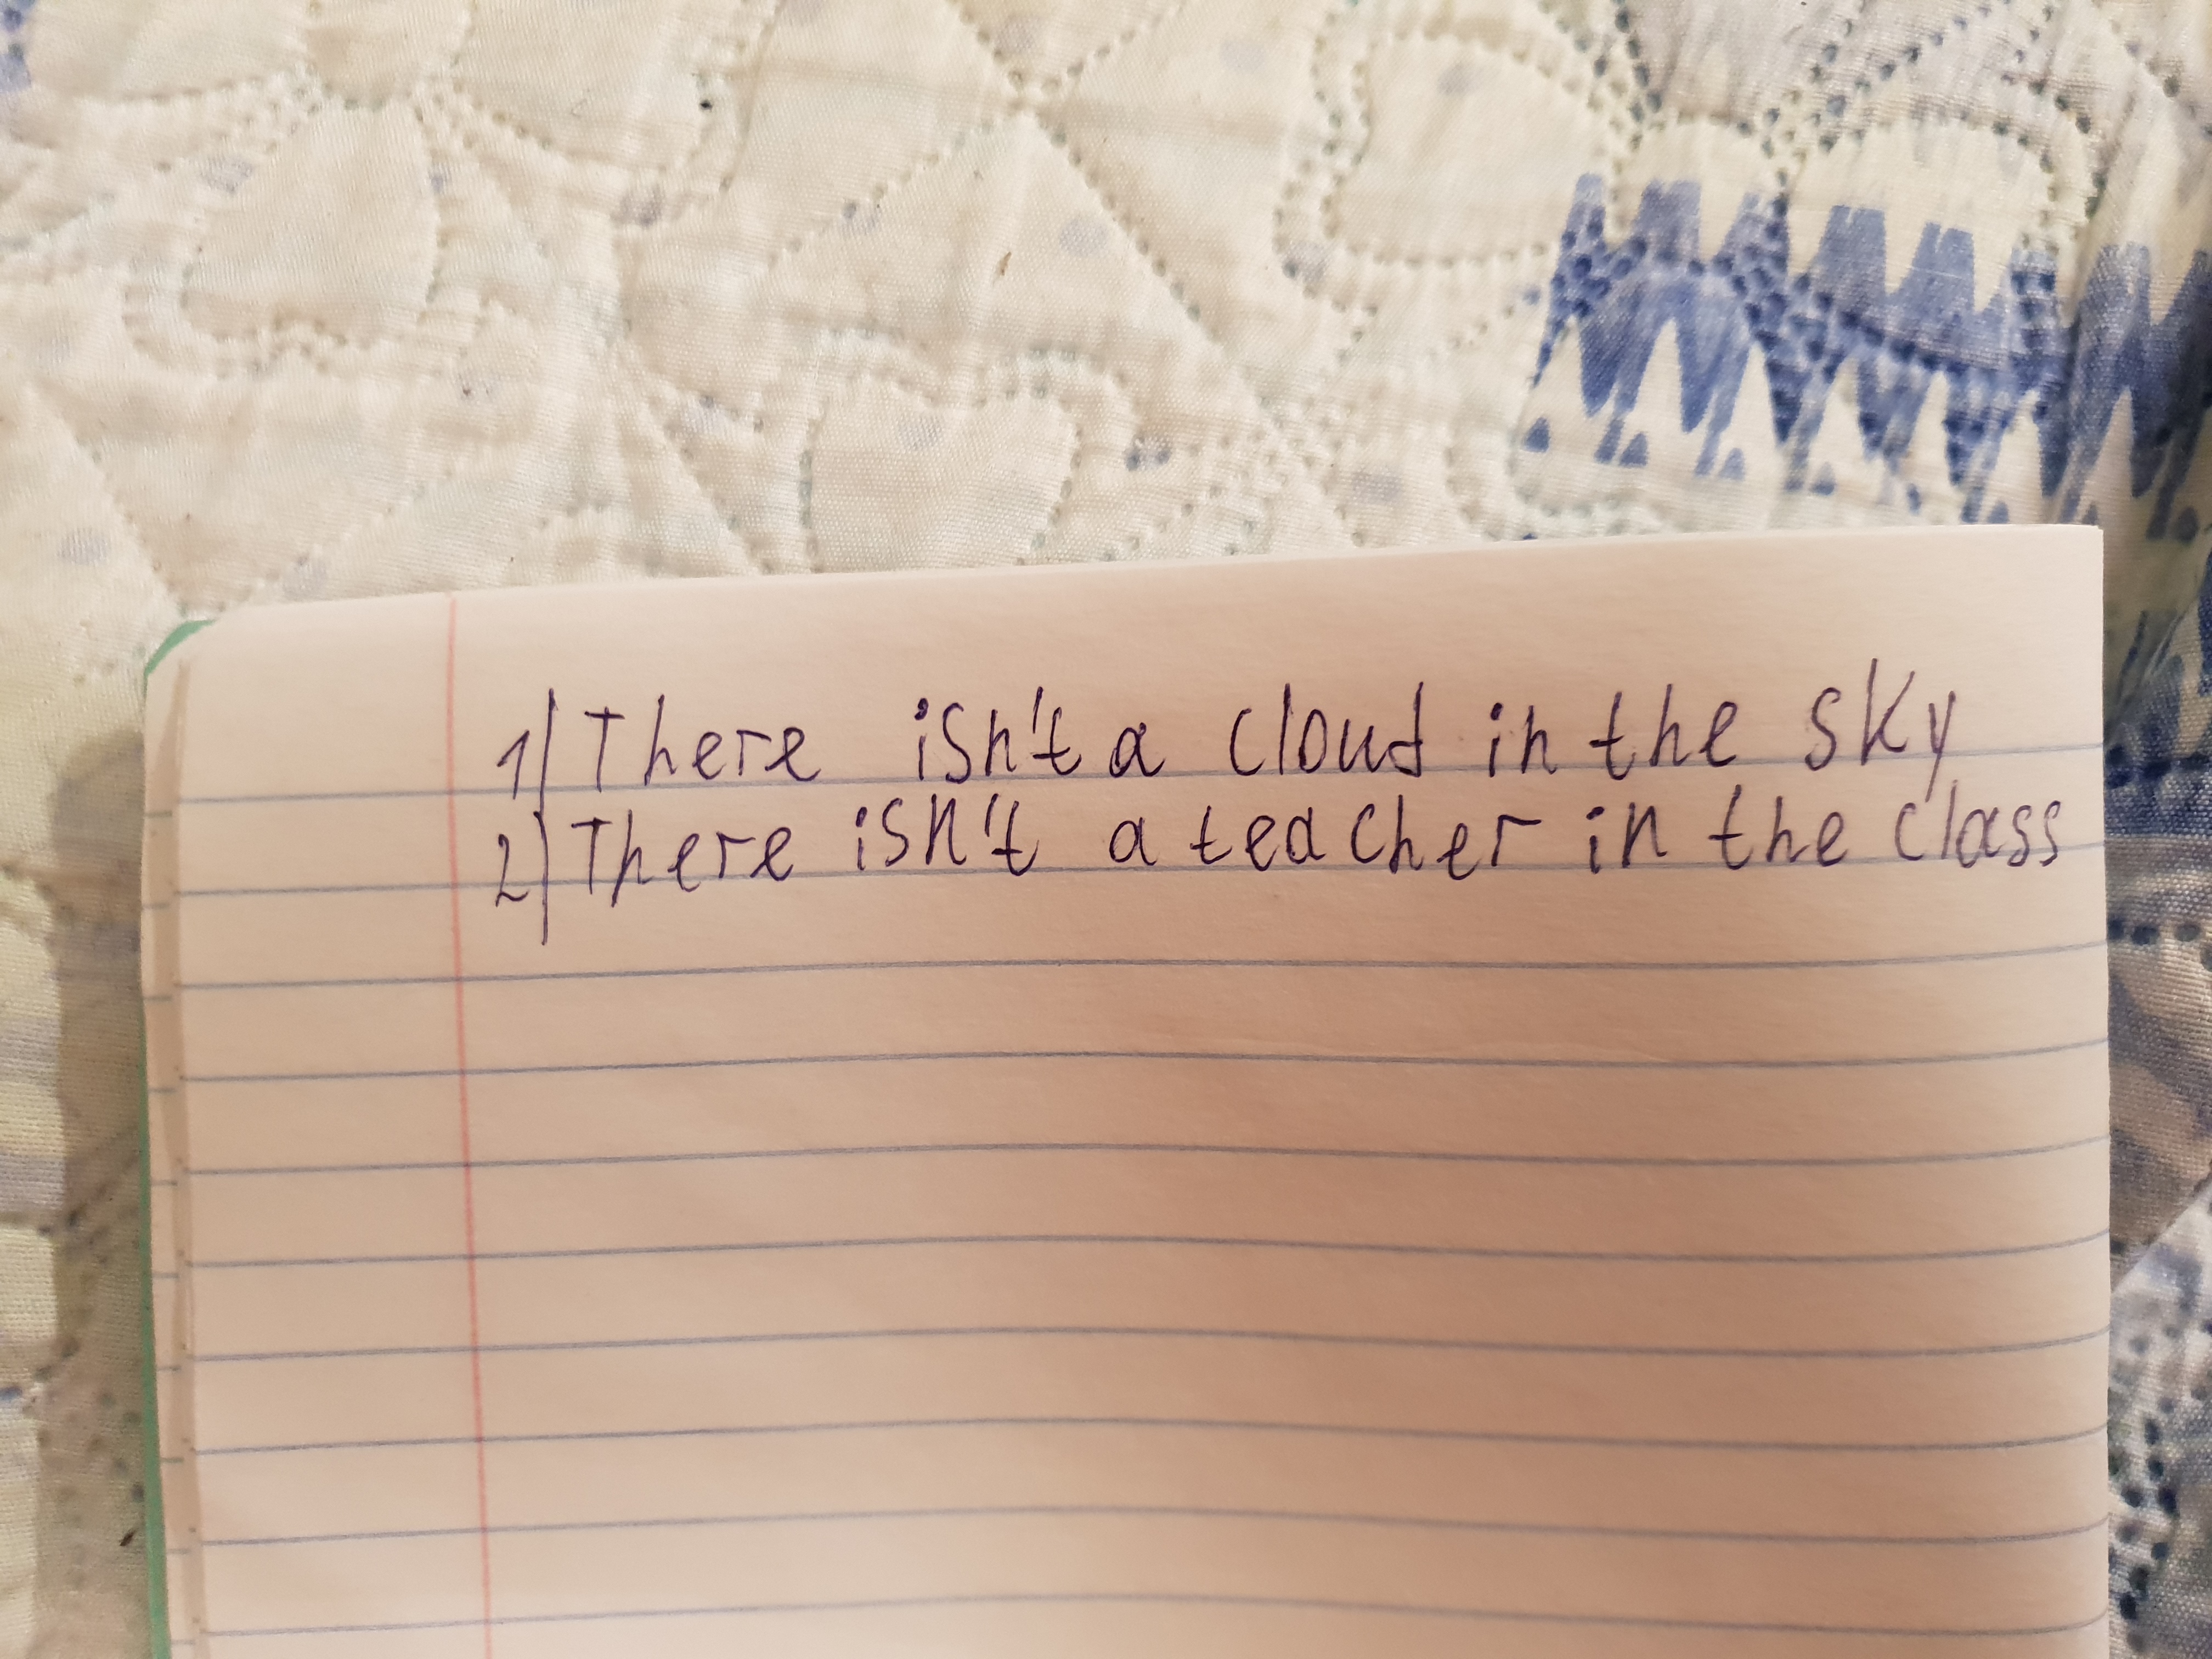 1) There isn't a cloud in the sky
2) There isn't a teacher in the class